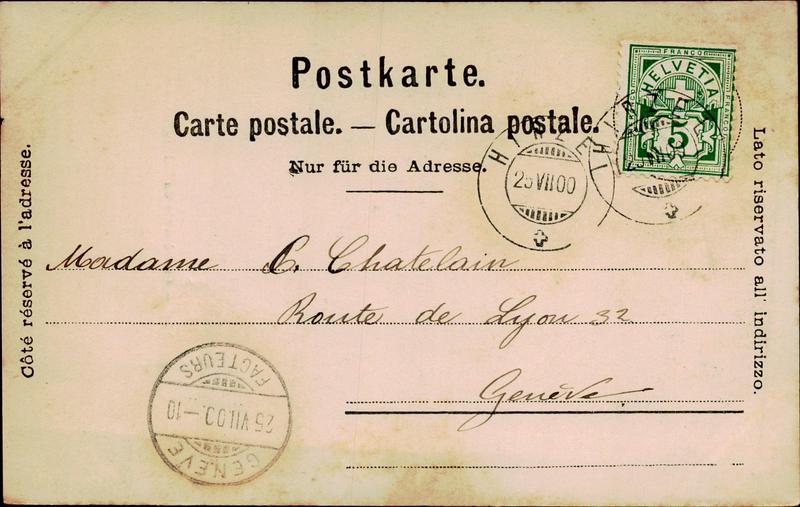 Postkarte.
Carte postale. — Cartolina postale.
Nur für die Adresse.
Côté réservé à l'adresse.
Lato riservato all' indirizzo.
FRANCO
HELVETIA
FRANCO
5
25 VII 00
Madame C. Chatelain
Route de Lyon 32
Genève
GENÈVE
25 VII 00 — 10
FACTEURS